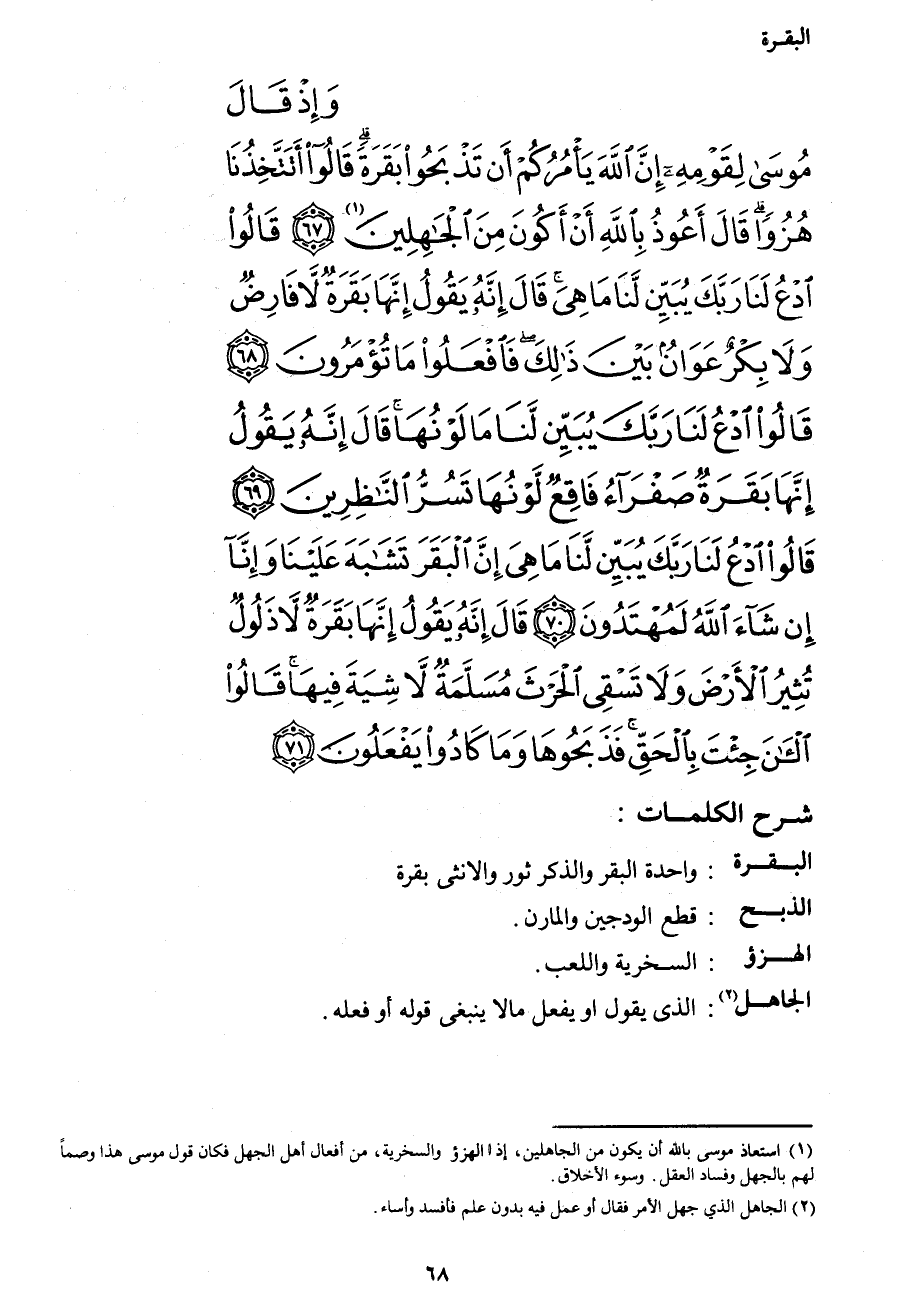 البقـرة
وَإِذْ قَـالَ
مُوسَىٰ لِقَوْمِهِۦٓ إِنَّ ٱللَّهَ يَأْمُرُكُمْ أَن تَذْبَحُوا۟ بَقَرَةً ۖ قَالُوٓا۟ أَتَتَّخِذُنَا
هُزُوًا ۖ قَالَ أَعُوذُ بِٱللَّهِ أَنْ أَكُونَ مِنَ ٱلْجَـٰهِلِينَ (١) ﴿٦٧﴾ قَالُوا۟
ٱدْعُ لَنَا رَبَّكَ يُبَيِّن لَّنَا مَا هِىَ ۚ قَالَ إِنَّهُۥ يَقُولُ إِنَّهَا بَقَرَةٌ لَّا فَارِضٌ
وَلَا بِكْرٌ عَوَانٌۢ بَيْنَ ذَٰلِكَ ۖ فَٱفْعَلُوا۟ مَا تُؤْمَرُونَ ﴿٦٨﴾
قَالُوا۟ ٱدْعُ لَنَا رَبَّكَ يُبَيِّن لَّنَا مَا لَوْنُهَا ۚ قَالَ إِنَّهُۥ يَقُولُ
إِنَّهَا بَقَرَةٌ صَفْرَآءُ فَاقِعٌ لَّوْنُهَا تَسُرُّ ٱلنَّـٰظِرِينَ ﴿٦٩﴾
قَالُوا۟ ٱدْعُ لَنَا رَبَّكَ يُبَيِّن لَّنَا مَا هِىَ إِنَّ ٱلْبَقَرَ تَشَـٰبَهَ عَلَيْنَا وَإِنَّآ
إِن شَآءَ ٱللَّهُ لَمُهْتَدُونَ ﴿٧٠﴾ قَالَ إِنَّهُۥ يَقُولُ إِنَّهَا بَقَرَةٌ لَّا ذَلُولٌ
تُثِيرُ ٱلْأَرْضَ وَلَا تَسْقِى ٱلْحَرْثَ مُسَلَّمَةٌ لَّا شِيَةَ فِيهَا ۚ قَالُوا۟
ٱلْـَٔـٰنَ جِئْتَ بِٱلْحَقِّ ۚ فَذَبَحُوهَا وَمَا كَادُوا۟ يَفْعَلُونَ ﴿٧١﴾
شـرح الكلمـات :
البـقـرة : واحدة البقر والذكر ثور والانثى بقرة
الذبـح : قطع الودجين والمارن .
الهـزؤ : السـخرية واللعب .
الجاهـل(٢) : الذى يقول او يفعل مالا ينبغى قوله أو فعله .
(١) استعاذ موسى بالله أن يكون من الجاهلين، إذ الهزؤ والسخرية، من أفعال أهل الجهل فكان قول موسى هذا وصماً
لهم بالجهل وفساد العقل . وسوء الأخلاق .
(٢) الجاهل الذي جهل الأمر فقال أو عمل فيه بدون علم فأفسد وأساء .
٦٨